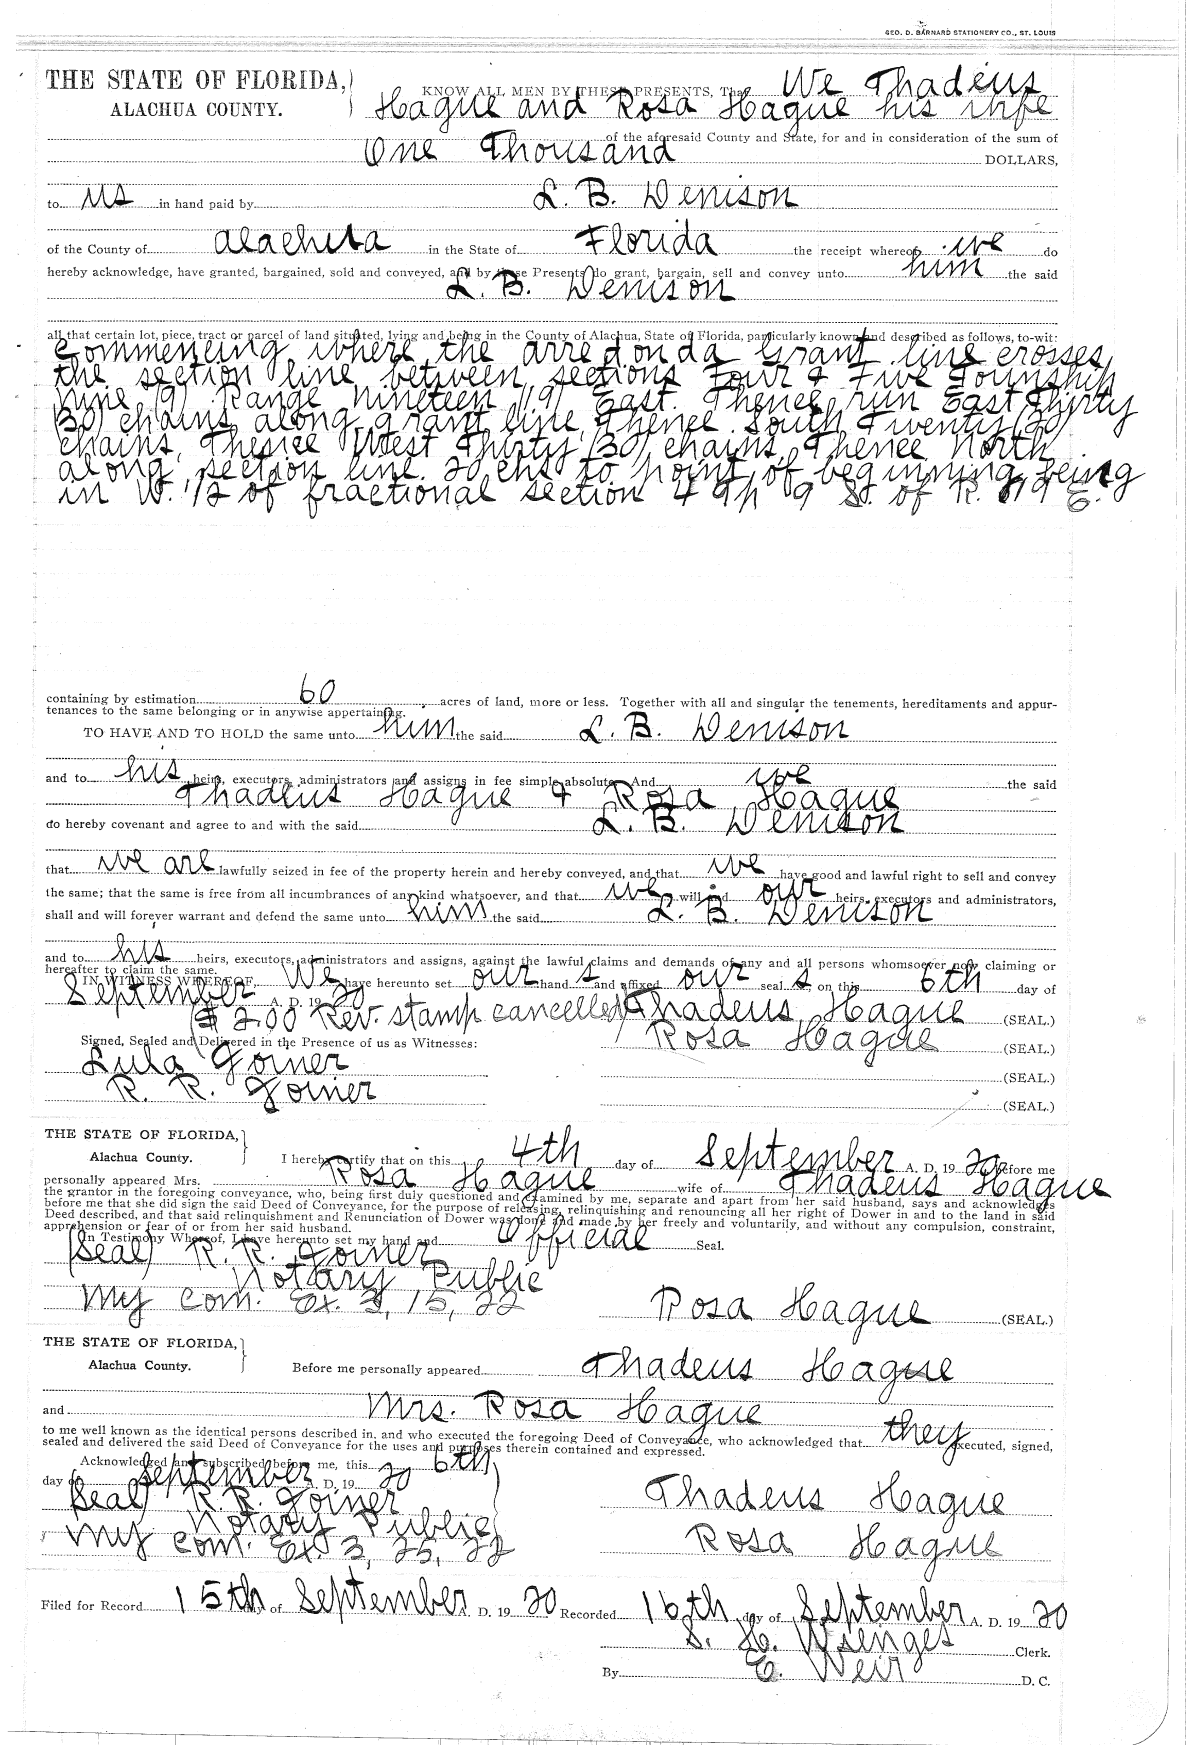 GEO. D. BARNARD STATIONERY CO., ST. LOUIS
THE STATE OF FLORIDA,
ALACHUA COUNTY.
KNOW ALL MEN BY THESE PRESENTS, That We Thadeus
Hague and Rosa Hague his wife
of the aforesaid County and State, for and in consideration of the sum of
One Thousand DOLLARS,
to us in hand paid by L. B. Denison
of the County of Alachua in the State of Florida the receipt whereof we do
hereby acknowledge, have granted, bargained, sold and conveyed, and by these Presents do grant, bargain, sell and convey unto him the said
L. B. Denison
all that certain lot, piece, tract or parcel of land situated, lying and being in the County of Alachua, State of Florida, particularly known and described as follows, to-wit:
Commencing where the arredonda Grant line crosses
the section line between sections Four & Five Township
Nine (9) Range Nineteen (19) East. Thence run East Thirty
(30) chains along grant line, Thence South Twenty (20)
chains, Thence West Thirty (30) chains, Thence North
along section line 20 chs to point of beginning being
in W. 1/2 of fractional section 4 Tp 9 S. of R. 19 E.
containing by estimation 60 acres of land, more or less. Together with all and singular the tenements, hereditaments and appur-
tenances to the same belonging or in anywise appertaining.
TO HAVE AND TO HOLD the same unto him the said L. B. Denison
and to his heirs, executors, administrators and assigns in fee simple absolute. And we the said
Thadeus Hague & Rosa Hague
do hereby covenant and agree to and with the said L. B. Denison
that we are lawfully seized in fee of the property herein and hereby conveyed, and that we have good and lawful right to sell and convey
the same; that the same is free from all incumbrances of any kind whatsoever, and that we will and our heirs, executors and administrators,
shall and will forever warrant and defend the same unto him the said L. B. Denison
and to his heirs, executors, administrators and assigns, against the lawful claims and demands of any and all persons whomsoever now claiming or
hereafter to claim the same.
IN WITNESS WHEREOF, We have hereunto set our hand s and affixed our seal s, on this 6th day of
September A. D. 19 20
($ 2.00 Rev. stamp cancelled) Thadeus Hague (SEAL.)
Signed, Sealed and Delivered in the Presence of us as Witnesses: Rosa Hague (SEAL.)
Lula Joiner (SEAL.)
R. R. Joiner (SEAL.)
THE STATE OF FLORIDA,
Alachua County.
I hereby certify that on this 4th day of September A. D. 19 20 before me
personally appeared Mrs. Rosa Hague wife of Thadeus Hague
the grantor in the foregoing conveyance, who, being first duly questioned and examined by me, separate and apart from her said husband, says and acknowledges
before me that she did sign the said Deed of Conveyance, for the purpose of releasing, relinquishing and renouncing all her right of Dower in and to the land in said
Deed described, and that said relinquishment and Renunciation of Dower was done and made by her freely and voluntarily, and without any compulsion, constraint,
apprehension or fear of or from her said husband.
In Testimony Whereof, I have hereunto set my hand and Official Seal.
(Seal) R. R. Joiner
Notary Public
My com. Ex. 3, 15, 22 Rosa Hague (SEAL.)
THE STATE OF FLORIDA,
Alachua County.
Before me personally appeared Thadeus Hague
and Mrs. Rosa Hague
to me well known as the identical persons described in, and who executed the foregoing Deed of Conveyance, who acknowledged that they executed, signed,
sealed and delivered the said Deed of Conveyance for the uses and purposes therein contained and expressed.
Acknowledged and subscribed before me, this 6th
day of September A. D. 19 20
(Seal) R. R. Joiner Thadeus Hague
Notary Public
My com. Ex. 3, 25, 22 Rosa Hague
Filed for Record 15th day of September A. D. 19 20 Recorded 16th day of September A. D. 19 20
S. H. Wienges Clerk.
By E. Weir D. C.